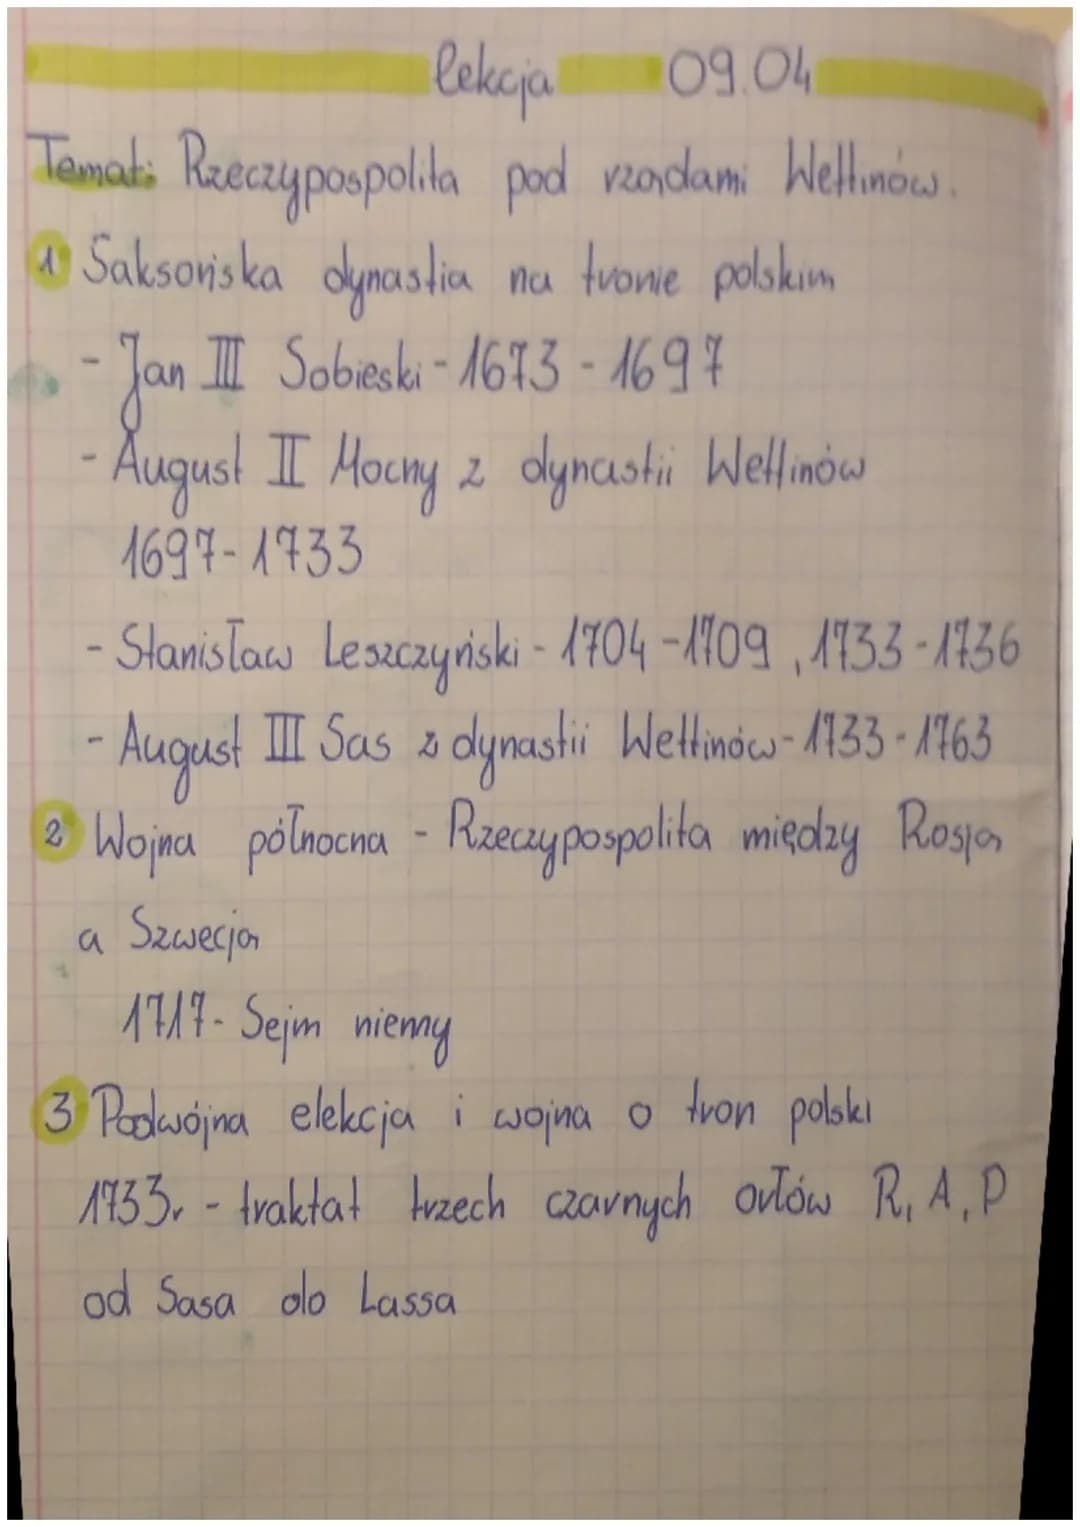 lekcja 09.04
Temat: Rzeczypospolita pod rządami Wettinów.
1 Saksońska dynastia na tronie polskim
- Jan III Sobieski - 1673 - 1697
- August II Mocny z dynastii Wettinów
1697 - 1733
- Stanisław Leszczyński - 1704 - 1709, 1733 - 1736
- August III Sas z dynastii Wettinów - 1733 - 1763
2 Wojna północna - Rzeczypospolita między Rosją
a Szwecją
1717 - Sejm niemy
3 Podwójna elekcja i wojna o tron polski
1733r. - traktat trzech czarnych orłów R, A, P
od Sasa do Lassa